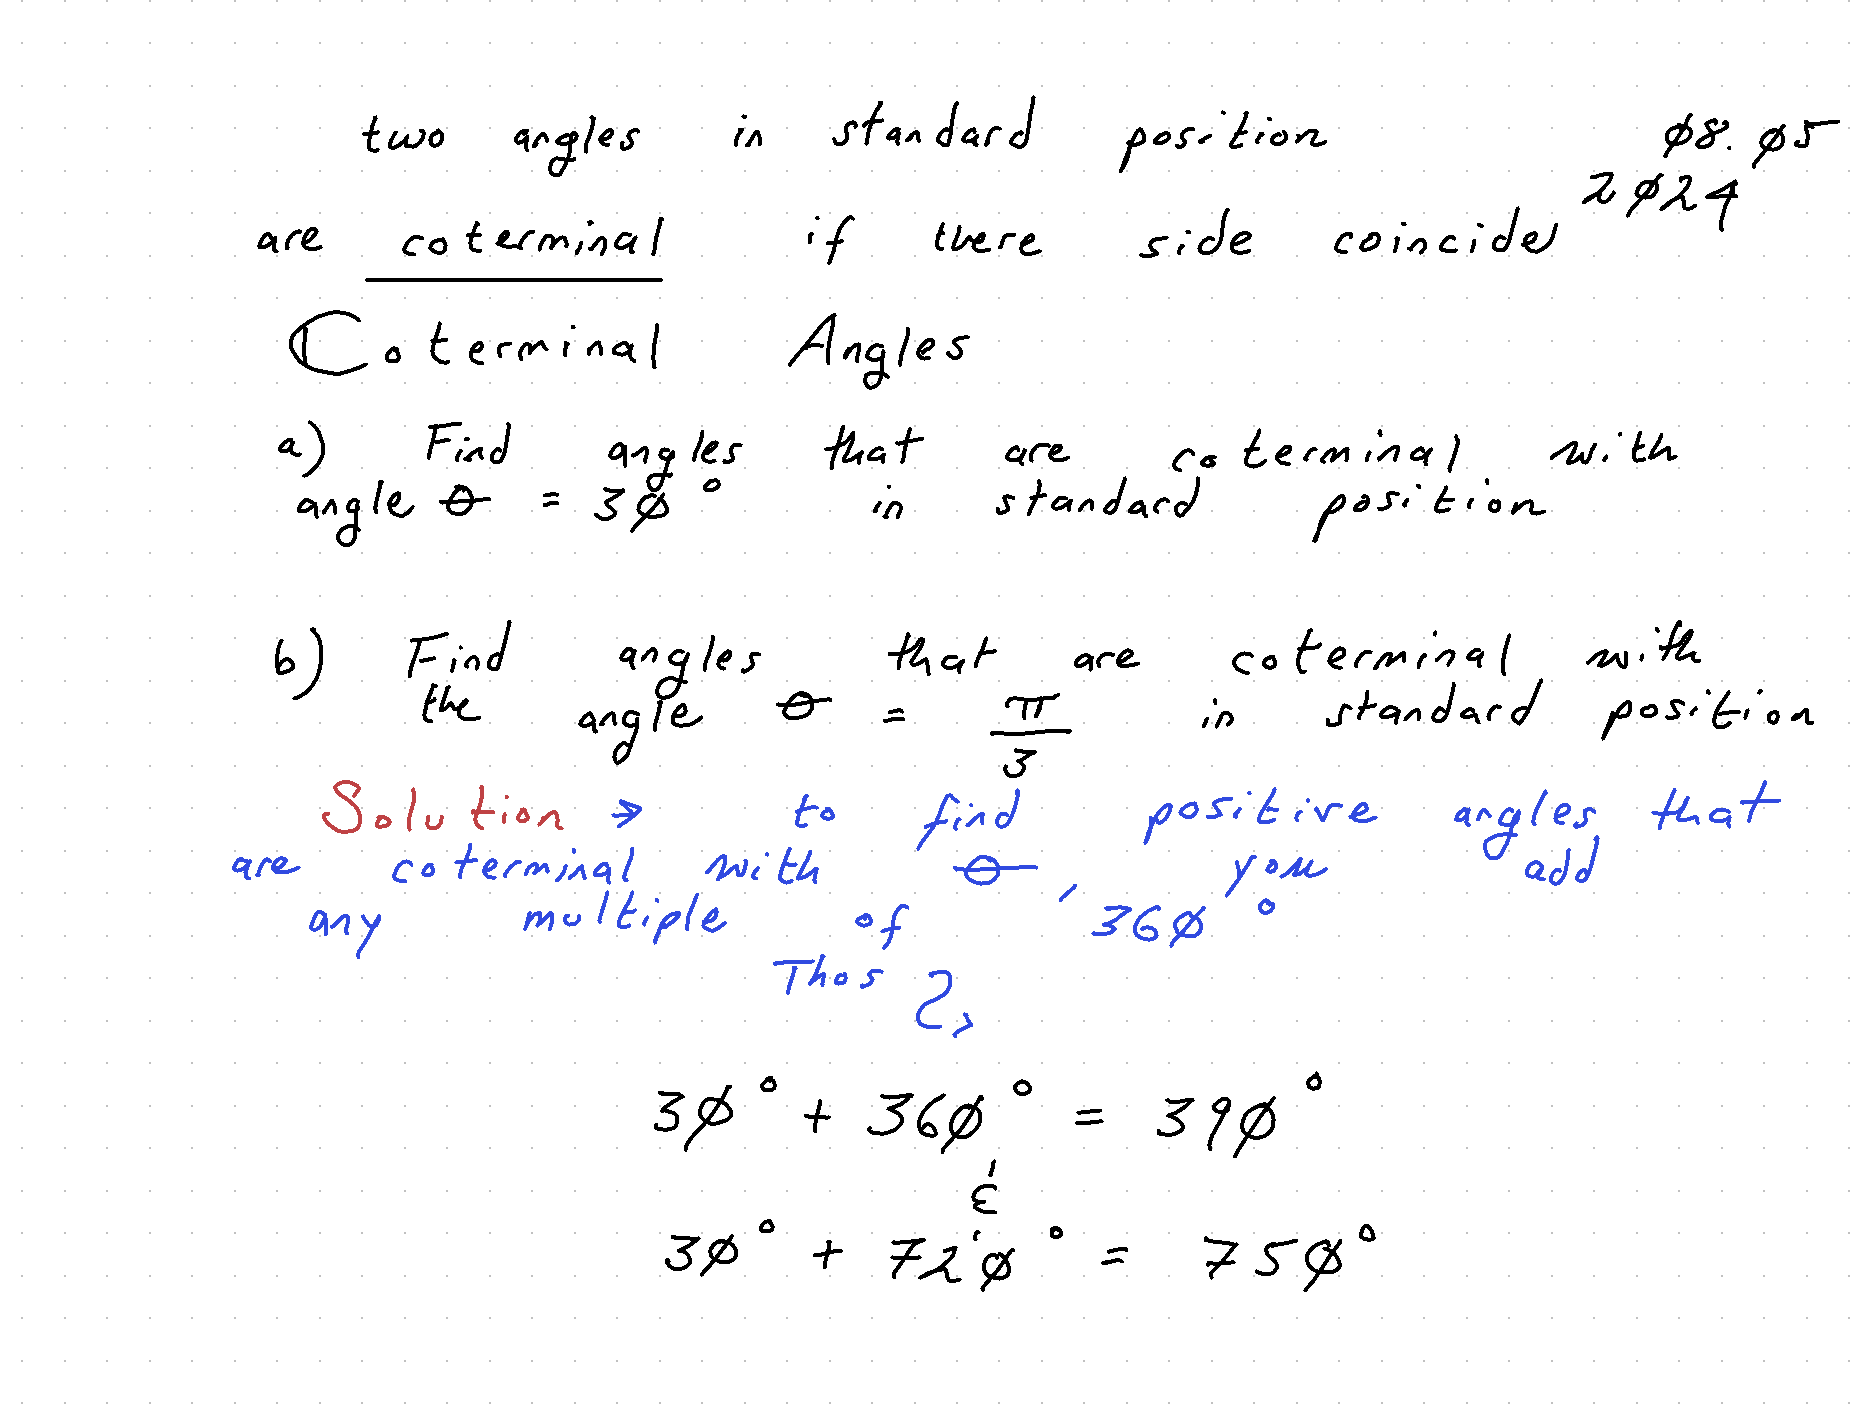 two angles in standard position
08.05
2024
are coterminal if there side coincide
Coterminal Angles
a) Find angles that are coterminal with
angle θ = 30° in standard position
b) Find angles that are coterminal with
the angle θ = π/3 in standard position
Solution → to find positive angles that
are coterminal with θ, you add
any multiple of 360°
Thos
30° + 360° = 390°
&
30° + 720° = 750°